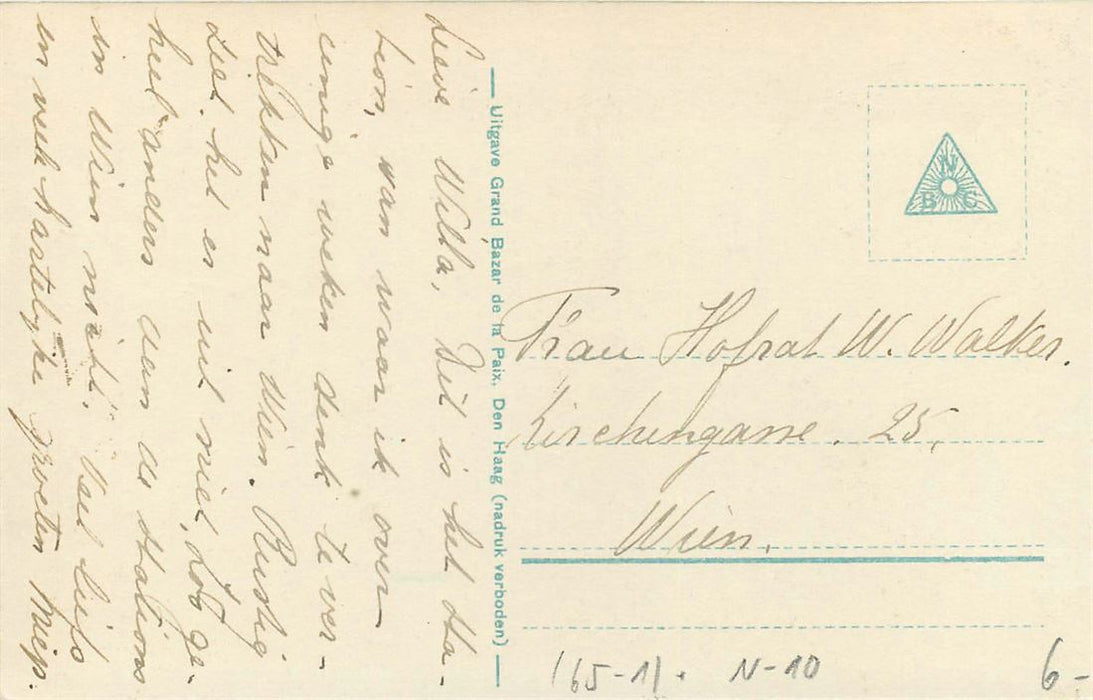 Lieve Willa, Dit is het sta-
tion, van waar ik over
eenige weken denk te ver-
trekken naar Wien. Rustig
ziet het er uit niet, zoo ge-
heel anders dan de stations
in Wien niet. Veel liefs
en veel hartelijke groeten Miep.
Uitgave Grand Bazar de la Paix, Den Haag (nadruk verboden)
N
B C
Frau Hofrat W. Walker.
Kirchengasse. 25,
Wien.
(65-1). N-10
6-